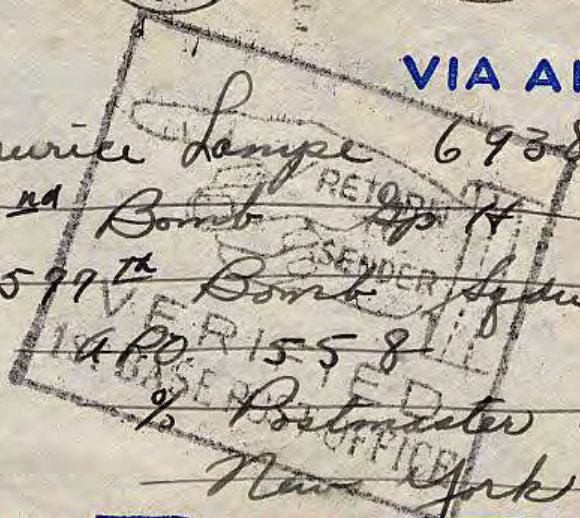 VIA AI
urice Lampe 6938
nd Bomb Gp H
577th Bomb Sqdr
A.P.O. 558
% Postmaster
New York
RETURN
TO
SENDER
VERIFIED
1ST BASE POST OFFICE